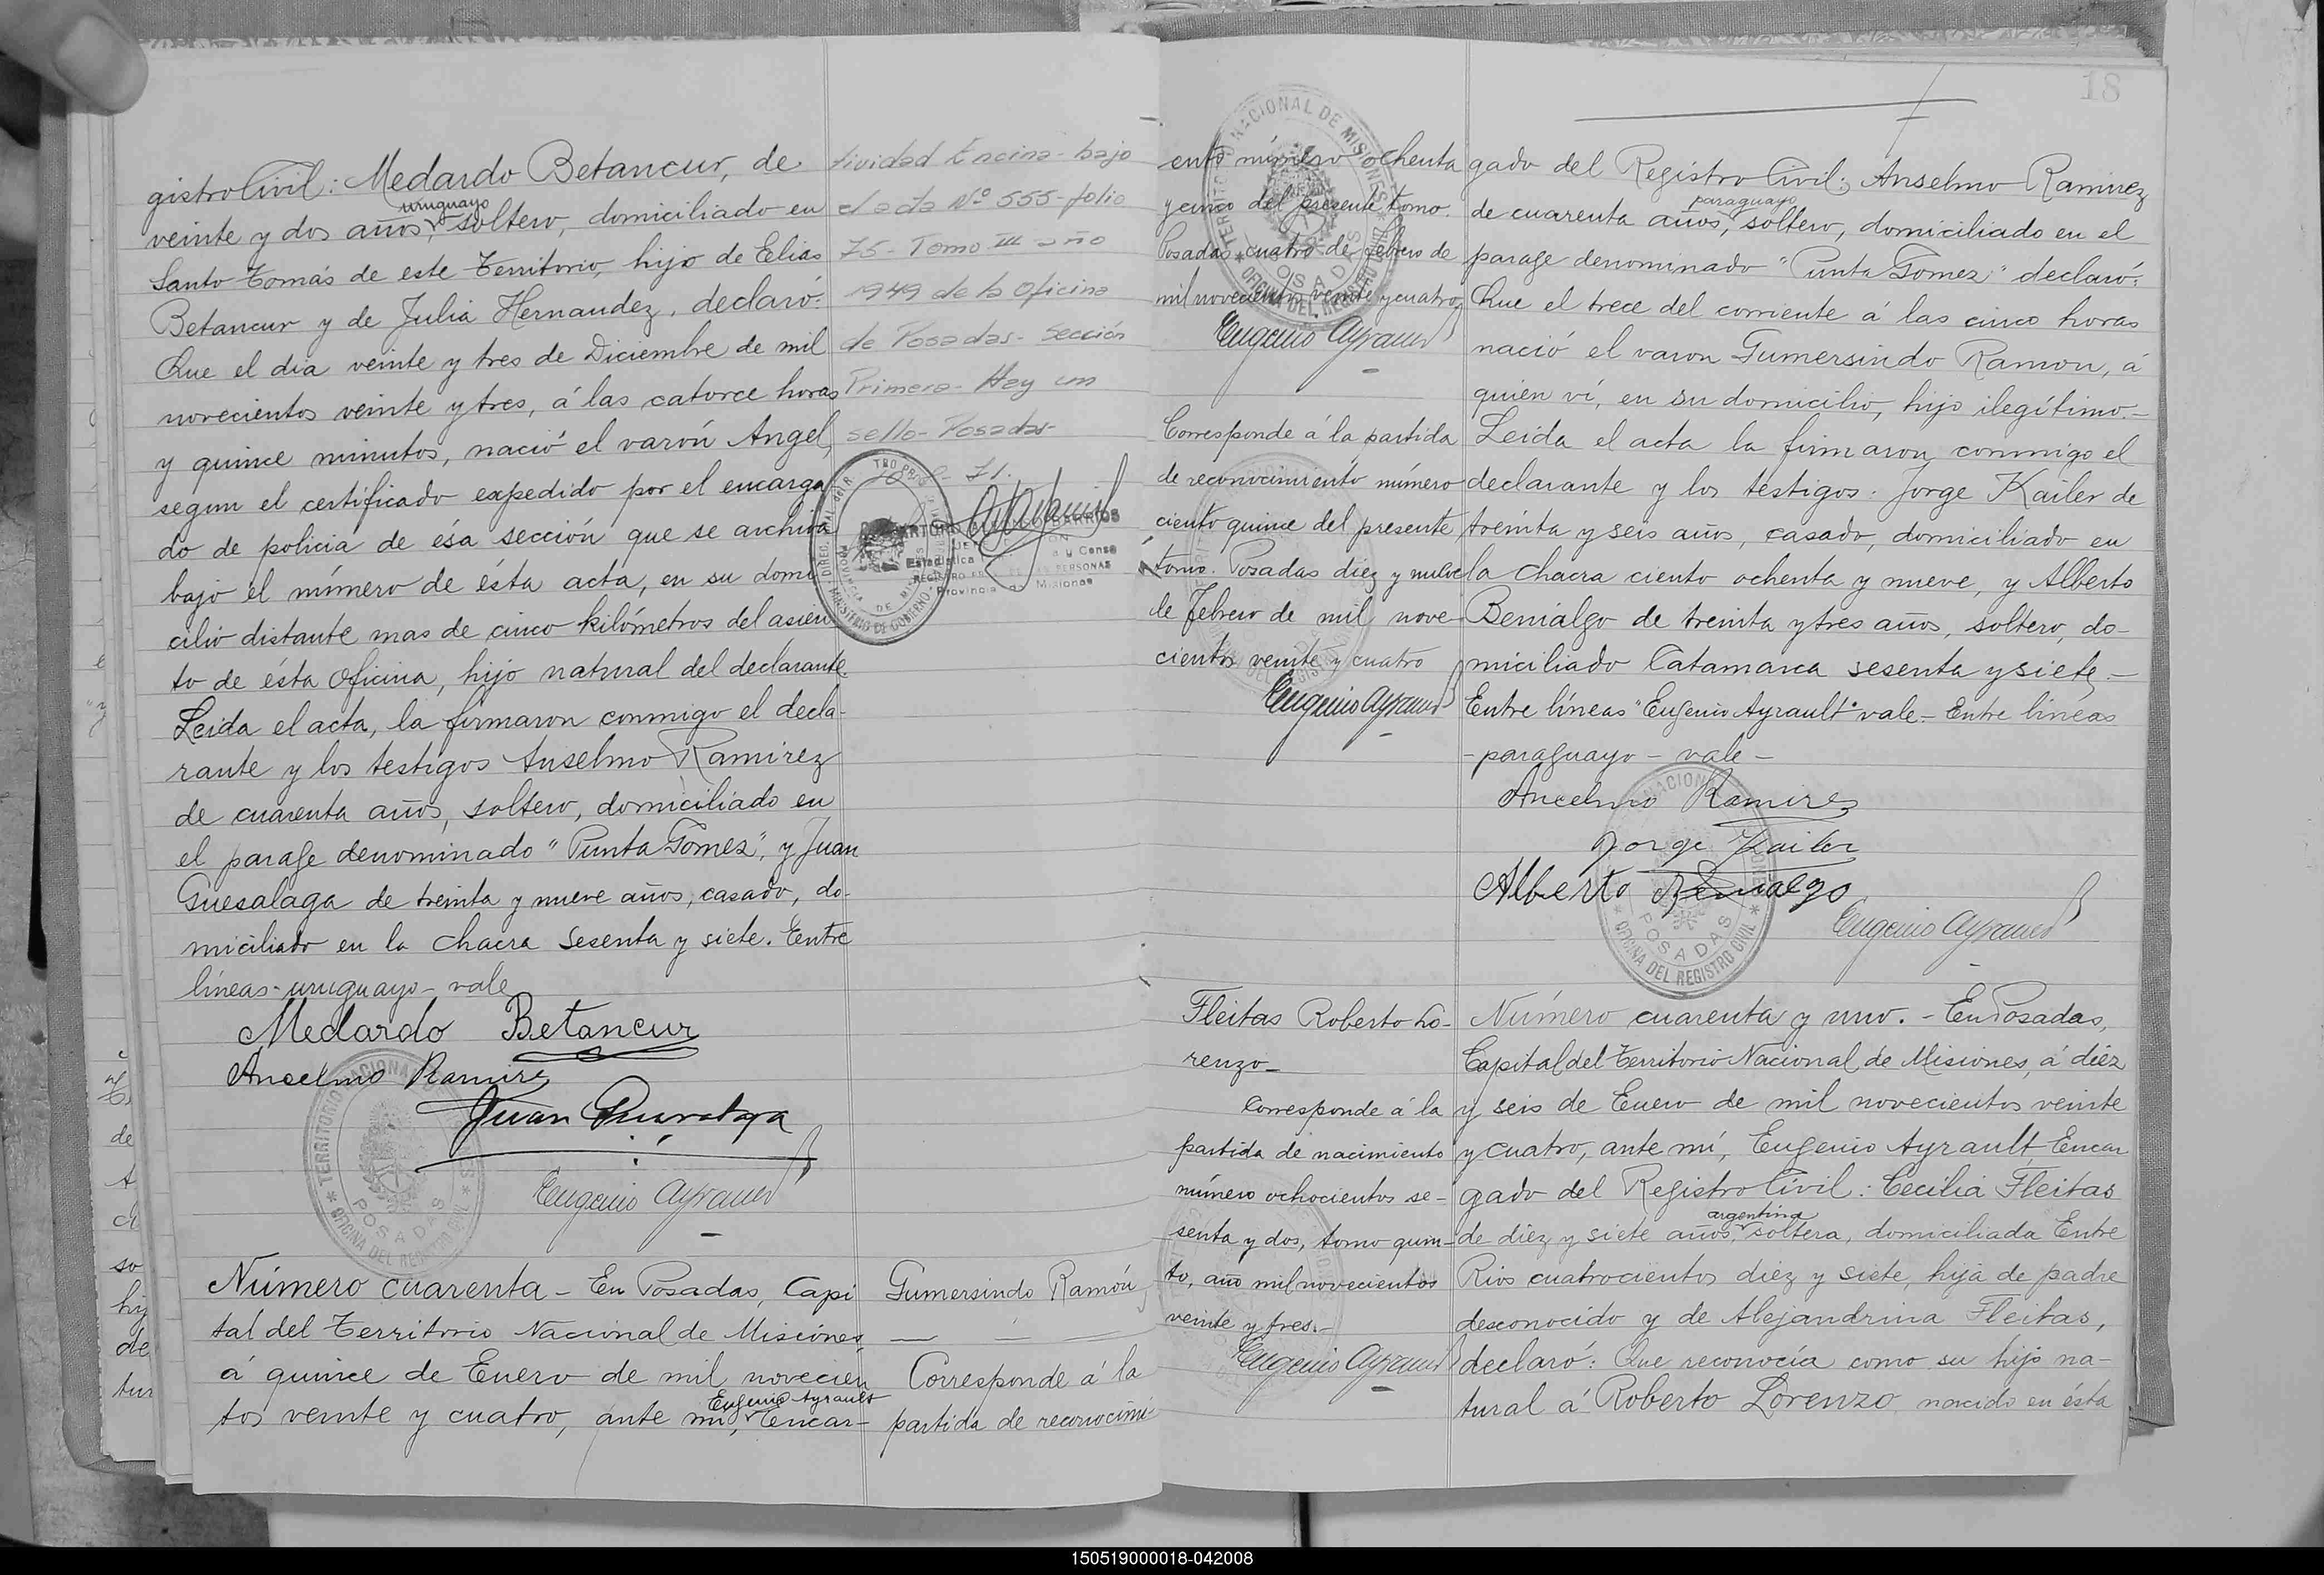 gistro Civil: Medardo Betancur, de
uruguayo
veinte y dos años, soltero, domiciliado en
Santo Tomás de este Territorio, hijo de Elias
Betancur y de Julia Hernandez, declaró:
Que el dia veinte y tres de Diciembre de mil
novecientos veinte y tres, á las catorce horas
y quince minutos, nació el varón Angel,
segun el certificado expedido por el encarga
do de policia de ésa sección que se archiva
bajo el número de ésta acta, en su domi
cilio distante mas de cinco kilómetros del asien
to de ésta Oficina, hijo natural del declarante.
Leida el acta, la firmaron conmigo el decla-
rante y los testigos Anselmo Ramirez
de cuarenta años, soltero, domiciliado en
el parage denominado "Punta Gomez", y Juan
Guesalaga de treinta y nueve años, casado, do-
miciliado en la chacra sesenta y siete. Entre
líneas - uruguayo - vale
Medardo Betancur
Ancelmo Ramirez
Juan
Eugenio Ayrault
TERRITORIO NACIONAL DE MISIONES
POSADAS
OFICINA DEL REGISTRO CIVIL
tividad Encina - bajo
el acta Nº 555 - folio
75 - Tomo III año
1949 de la Oficina
de Posadas - Sección
Primera - Hay un
sello - Posadas -
71.
Estadística y Censo
PERSONAS
Provincia de Misiones
MINISTERIO DE GOBIERNO
Número cuarenta - En Posadas, Capi
tal del Territorio Nacional de Misiones
á quince de Enero de mil novecien
Eugenio Ayrault
tos veinte y cuatro, ante mí, encar-
Gumersindo Ramón
Corresponde á la
partida de reconocimi-
18
ento número ochenta
y cinco del presente tomo.
Posadas cuatro de febrero de
mil novecientos veinte y cuatro.
Eugenio Ayrault
TERRITORIO NACIONAL DE MISIONES
POSADAS
OFICINA DEL REGISTRO CIVIL
Corresponde á la partida
de reconocimiento número
ciento quince del presente
tomo. Posadas diez y nueve
de febrero de mil nove-
cientos veinte y cuatro
Eugenio Ayrault
gado del Registro Civil: Anselmo Ramirez
paraguayo
de cuarenta años, soltero, domiciliado en el
parage denominado "Punta Gomez" declaró:
Que el trece del corriente á las cinco horas
nació el varon Gumersindo Ramon, á
quien ví, en su domicilio, hijo ilegítimo.-
Leida el acta la firmaron conmigo el
declarante y los testigos. Jorge Kailer de
treinta y seis años, casado, domiciliado en
la chacra ciento ochenta y nueve, y Alberto
Benialgo de treinta y tres años, soltero, do-
miciliado Catamarca sesenta y siete.-
Entre líneas "Eugenio Ayrault" vale.- Entre líneas
-paraguayo - vale -
Ancelmo Ramirez
Jorge Kailer
Alberto Benialgo
Eugenio Ayrault
NACIONAL
POSADAS
OFICINA DEL REGISTRO CIVIL
Fleitas Roberto Lo-
renzo-
Corresponde á la
partida de nacimiento
número ochocientos se-
senta y dos, tomo quin-
to, año mil novecientos
veinte y tres.-
Eugenio Ayrault
Número cuarenta y uno. - En Posadas,
Capital del Territorio Nacional de Misiones, á diez
y seis de Enero de mil novecientos veinte
y cuatro, ante mí, Eugenio Ayrault Encar
gado del Registro Civil: Cecilia Fleitas
argentina
de diez y siete años, soltera, domiciliada Entre
Rios cuatrocientos diez y siete, hija de padre
desconocido y de Alejandrina Fleitas,
declaró: Que reconocía como su hijo na-
tural á Roberto Lorenzo nacido en ésta
150519000018-042008